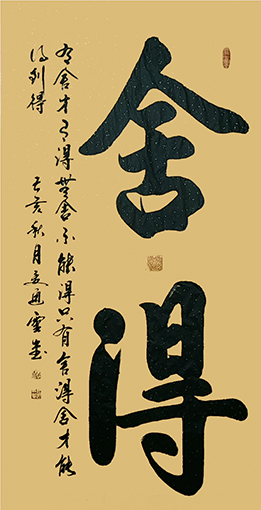 舍得
有舍才有得無舍不能得只有舍得舍才能
得到得 己亥秋月